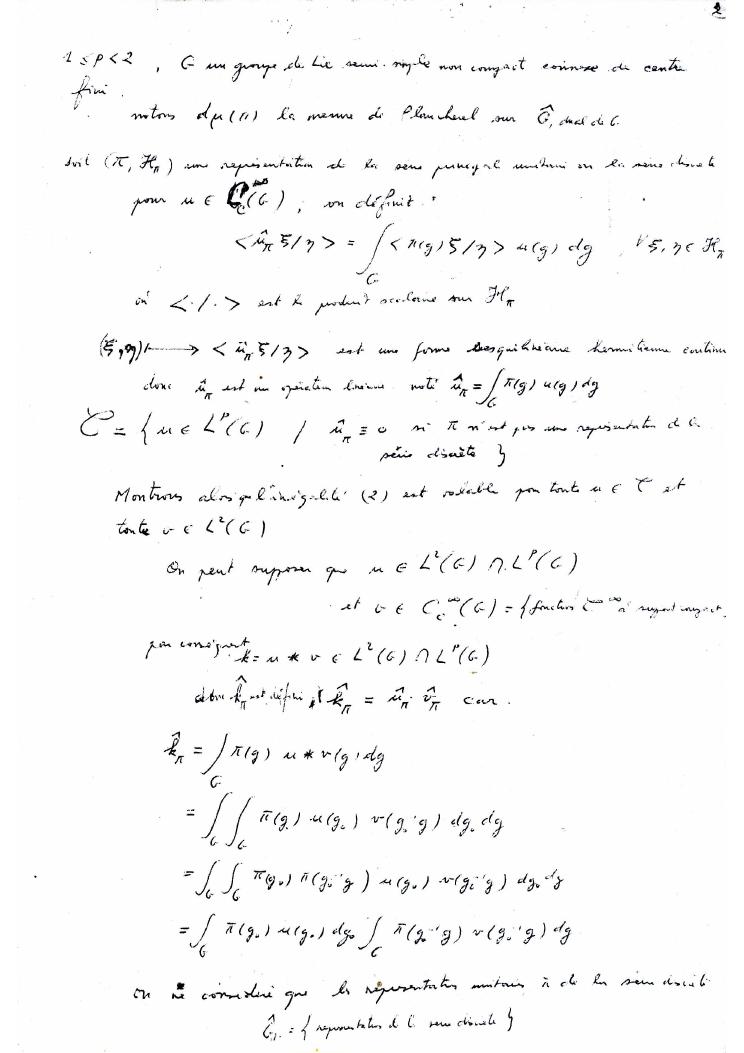 2
1 ≤ p < 2 , G un groupe de Lie semi-simple non compact connexe de centre
fini.
notons dμ(π) la mesure de Plancherel sur Ĝ, dual de G.
soit (π, H_π) une représentation de la série principale unitaire ou la série discrète
pour u ∈ C_c^∞(G), on définit :
<û_π ξ/η> = ∫_G <π(g)ξ/η> u(g) dg ∀ ξ, η ∈ H_π
où <./.> est le produit scalaire sur H_π
(ξ,η) ⟼ <û_π ξ/η> est une forme sesquilinéaire hermitienne continue
donc û_π est un opérateur linéaire noté û_π = ∫_G π(g) u(g) dg
C = { u ∈ L^p(G) / û_π ≡ 0 si π n'est pas une représentation de la
série discrète }
Montrons alors que l'inégalité (2) est valable pour toute u ∈ C et
toute v ∈ L²(G)
On peut supposer que u ∈ L²(G) ∩ L^p(G)
et v ∈ C_c^∞(G) = { fonctions C^∞ à support compact.
par conséquent k = u * v ∈ L²(G) ∩ L^p(G)
donc k̂_π est défini, et k̂_π = û_π · v̂_π car.
k̂_π = ∫_G π(g) u * v(g) dg
= ∫_G ∫_G π(g) u(g₀) v(g₀⁻¹g) dg₀ dg
= ∫_G ∫_G π(g₀) π(g₀⁻¹g) u(g₀) v(g₀⁻¹g) dg₀ dg
= ∫_G π(g₀) u(g₀) dg₀ ∫_G π(g₀⁻¹g) v(g₀⁻¹g) dg
On ne considère que les représentations unitaires π de la série discrète
= { représentations de la série discrète }